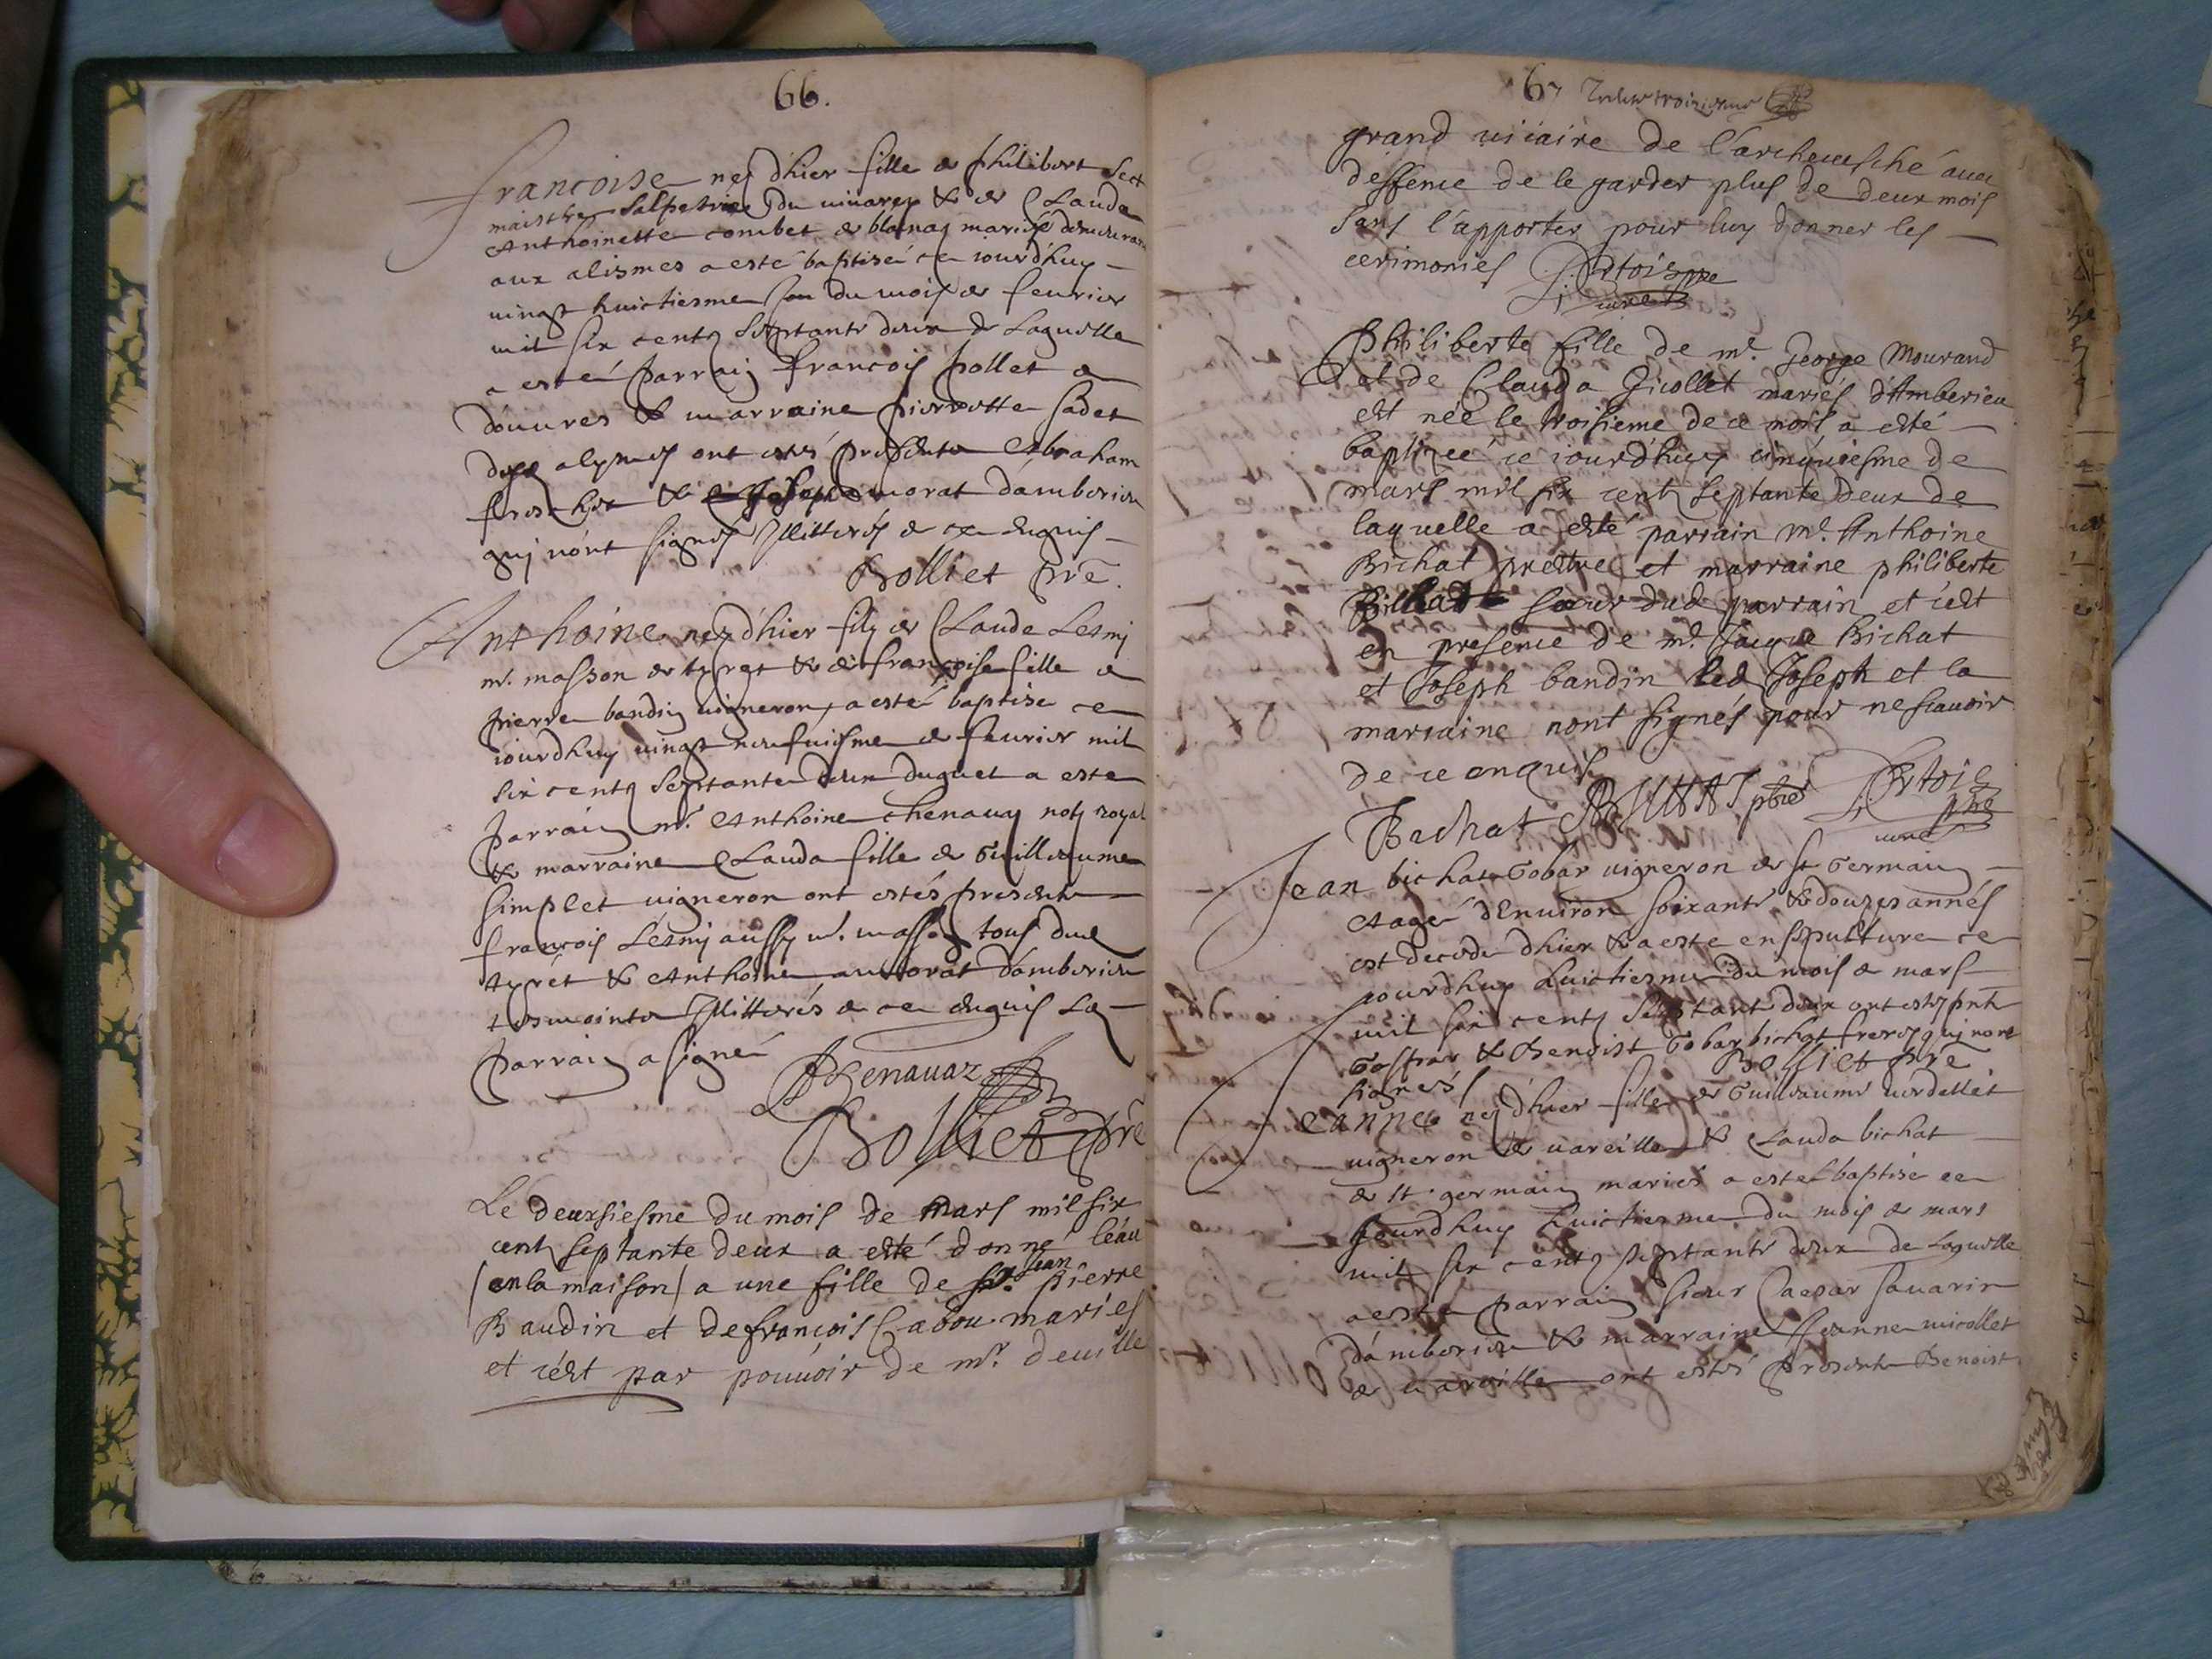 66.
francoise neé dhier fille de philibert
maistre salpetrier du uiuarex & de Clauda
Anthoinette combet de blanaz mariés demeurans
aux alismes a esté baptisé ce iourdhuy
uingt huictiesme du mois de feurier
mil six centz septante deux de Laquelle
a esté parrain francois pollet de
douures & marraine pierrette
alymes ont estés presents Abraham
& morat damberieu
qui nont signés Illitterés de ce enquis
Bolliet pre.
Anthoine nez dhier filz de Claude Lesnj
mr. masson de tyret & de francoise fille de
pierre baudin uigneron, a esté baptise ce
iourdhuy uingt neufuiesme de feurier mil
six centz septante deux duquel a este
parrain mr. Anthoine chenauaz notz royal
& marraine Clauda fille de Guilleaume
simplet uigneron ont estés presents
francois Lesnj aussy mr. masson tous dud
tyrét & Anthoine morat damberieu
tesmointz Illitterés de ce enquis Le
parrain a signé
Chenauaz
Bolliet pre
Le deuxsiesme du mois de mars mil six
cents septante deux a esté donné léau
(en la maison) a une fille de Jean pierre
Baudin et de francois Cabou mariés
et cést par pouuoir de mr. deuille
67
grand uicaire de l'archeuesché auec
deffence de le garder plus de deux mois
sans l'apporter pour luy donner les
cerimonies
curé
Philiberte fille de mr. George Mourand
et de Clauda Gicollet mariés d'Amberieu
est née le troisieme de ce mois a esté
baptizeé ce iourd'huy cinquiesme de
mars mil six cents septante deux de
laquelle a esté parrain mr. Anthoine
Bichat prettre et marraine philiberte
soeur dud parrain et cést
en presence de mr. Jacque Bichat
et Joseph baudin led Joseph et la
marraine nont signés pour ne scauoir
de ce enquis
Bichat BICHAT pbre
pbre
curé
Jean bichat Gobar uigneron de st Germain
Aagé dEnuiron soixante & douzes annés
est decede dhier & a este ensepulture ce
jourdhuy huictiesme du mois de mars
mil six centz septante deux ont estez pnts
Gaspar & Benoist Gobar bichat freres qui nont
signés Bolliet pre
Jeanne neé dhier fille de Guilleaume uerdellet
uigneron de uareille & Clauda bichat
de st. germain mariés a esté baptisé ce
jourdhuy huictiesme du mois de mars
mil six centz septante deux de Laquelle
a esté parrain sieur Caesar sauarin
damberieu & marraine Jeanne micollet
de uareille ont estés presents Benoist